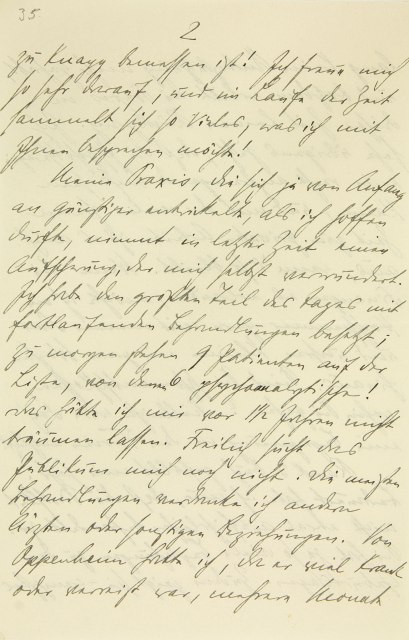 35.
2
zu knapp bemessen ist! Ich freue mich
so sehr darauf, und im Laufe der Zeit
sammelt sich so vieles, was ich mit
Ihnen besprechen möchte!
Meine Praxis, die sich ja von Anfang
an günstiger entwickelte, als ich hoffen
durfte, nimmt in letzter Zeit einen
Aufschwung, der mich selbst verwundert.
Ich habe den größten Teil des Tages mit
fortlaufenden Behandlungen besetzt;
zu morgen stehen 9 Patienten auf der
Liste, von denen 6 psychoanalytische!
Das hätte ich mir vor 1 1/2 Jahren nicht
träumen lassen. Freilich sucht das
Publikum mich noch nicht. Die meisten
Behandlungen verdanke ich andern
Ärzten oder sonstigen Beziehungen. Von
Oppenheim hätte ich, da er viel krank
oder verreist war, mehrere Monate